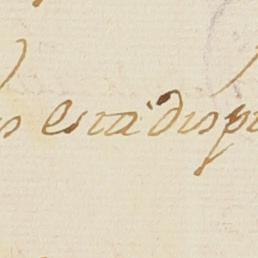 esta dispu